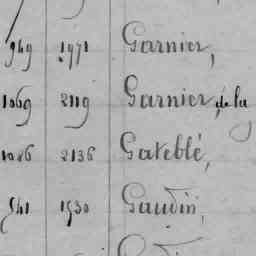 949 1971 Garnier,
1069 2119 Garnier, de la
1086 2136 Gateblé,
541 1530 Gaudin,